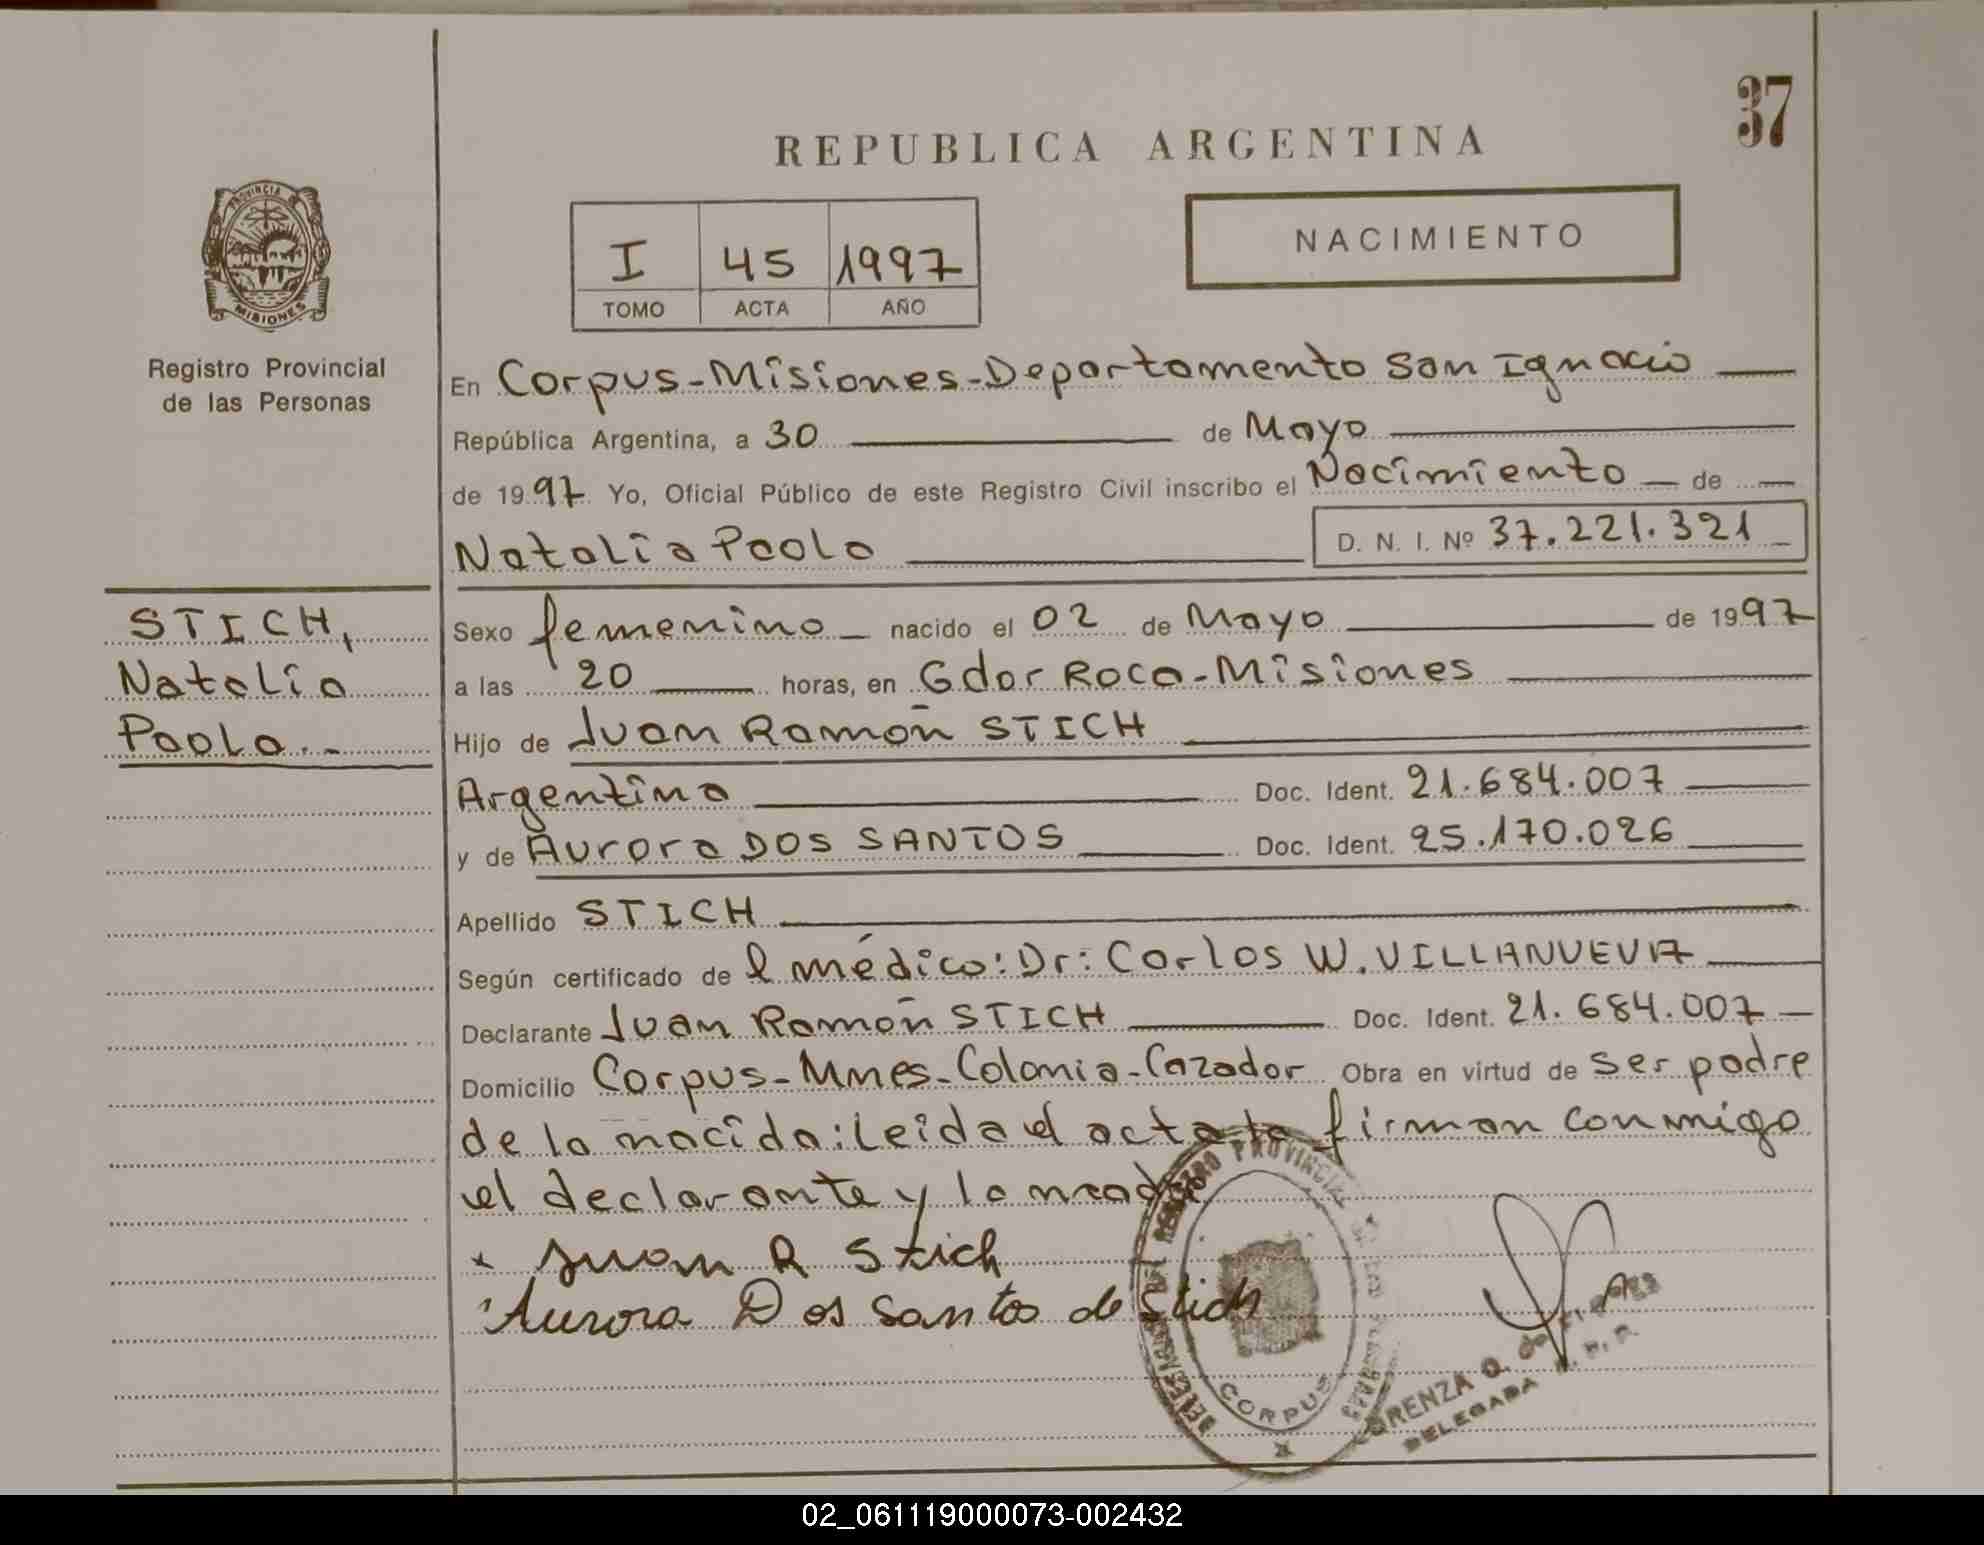 37
REPUBLICA ARGENTINA
I 45 1997
TOMO ACTA AÑO
NACIMIENTO
PROVINCIA
MISIONES
Registro Provincial
de las Personas
En Corpus-Misiones-Departamento San Ignacio
República Argentina, a 30 de Mayo
de 1997 Yo, Oficial Público de este Registro Civil inscribo el Nacimiento de
Natalia Paola D. N. I. Nº 37.221.321
STICH,
Natalia
Paola.-
Sexo femenino nacido el 02 de Mayo de 1997
a las 20 horas, en Gdor Roca-Misiones
Hijo de Juan Ramón STICH
Argentino Doc. Ident. 21.684.007
y de Aurora DOS SANTOS Doc. Ident. 25.170.026
Apellido STICH
Según certificado de l médico: Dr: Carlos W. VILLANUEVA
Declarante Juan Ramón STICH Doc. Ident. 21.684.007
Domicilio Corpus-Mnes-Colonia-Cazador Obra en virtud de ser padre
de la nacida: Leida el acta la firman conmigo
el declarante y la madre
x Juan R Stich
Aurora Dos Santos de Stich
REGISTRO PROVINCIAL DE LAS PERSONAS
CORPUS
LORENZA O. de
DELEGADA R. P. P.
02_061119000073-002432